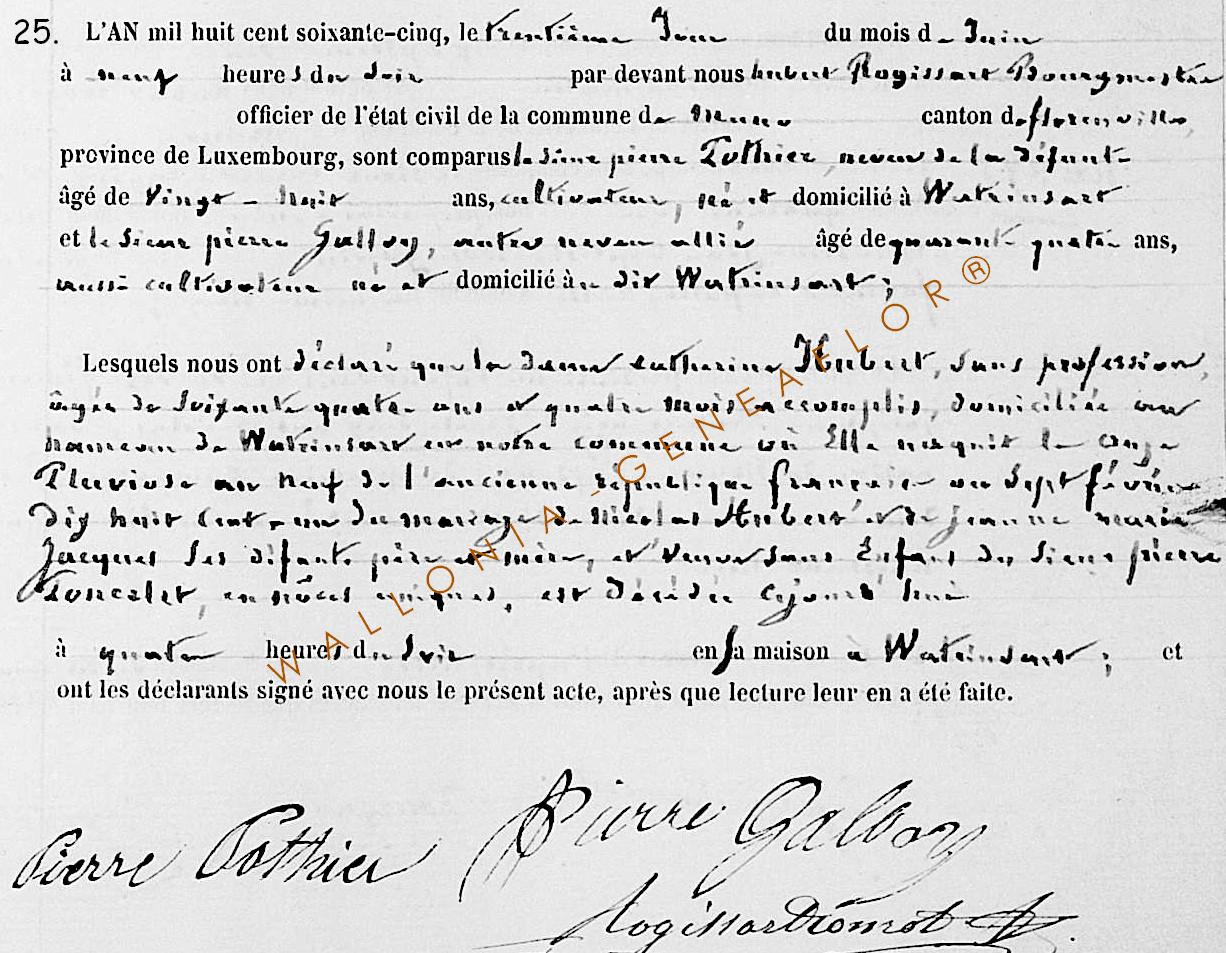 25. L'AN mil huit cent soixante-cinq, le trentième Jour du mois de Juin
à neuf heures du Soir par devant nous hubert Rogissart Bourgmestre
officier de l'état civil de la commune de muno canton de florenville
province de Luxembourg, sont comparus le Sieur pierre Pothier, neveu de la défunte
âgé de Vingt-huit ans, cultivateur, né et domicilié à Watrinsart
et le Sieur pierre Galloy, autre neveu allié âgé de quarante quatre ans,
aussi cultivateur né et domicilié à dit Watrinsart;
Lesquels nous ont déclaré que la dame catherine Hubert, Sans profession,
âgée de Soixante quatre ans et quatre mois accomplis, domiciliée au
hameau de Watrinsart en notre commune où Elle naquit le onze
Pluviose an neuf de l'ancienne république française ou Sept février
dix huit Cent-un du mariage de Nicolas Hubert et de jeanne marie
Jacques Ses défunts père et mère, et Veuve sans Enfans du Sieur pierre
Poncelet, en nôces uniques, est décédée cejourd'hui
à quatre heures du Soir en Sa maison à Watrinsart; et
ont les déclarants signé avec nous le présent acte, après que lecture leur en a été faite.
WALLONIA-GENEAFLOR®
Pierre Galloy
Pierre Pothier